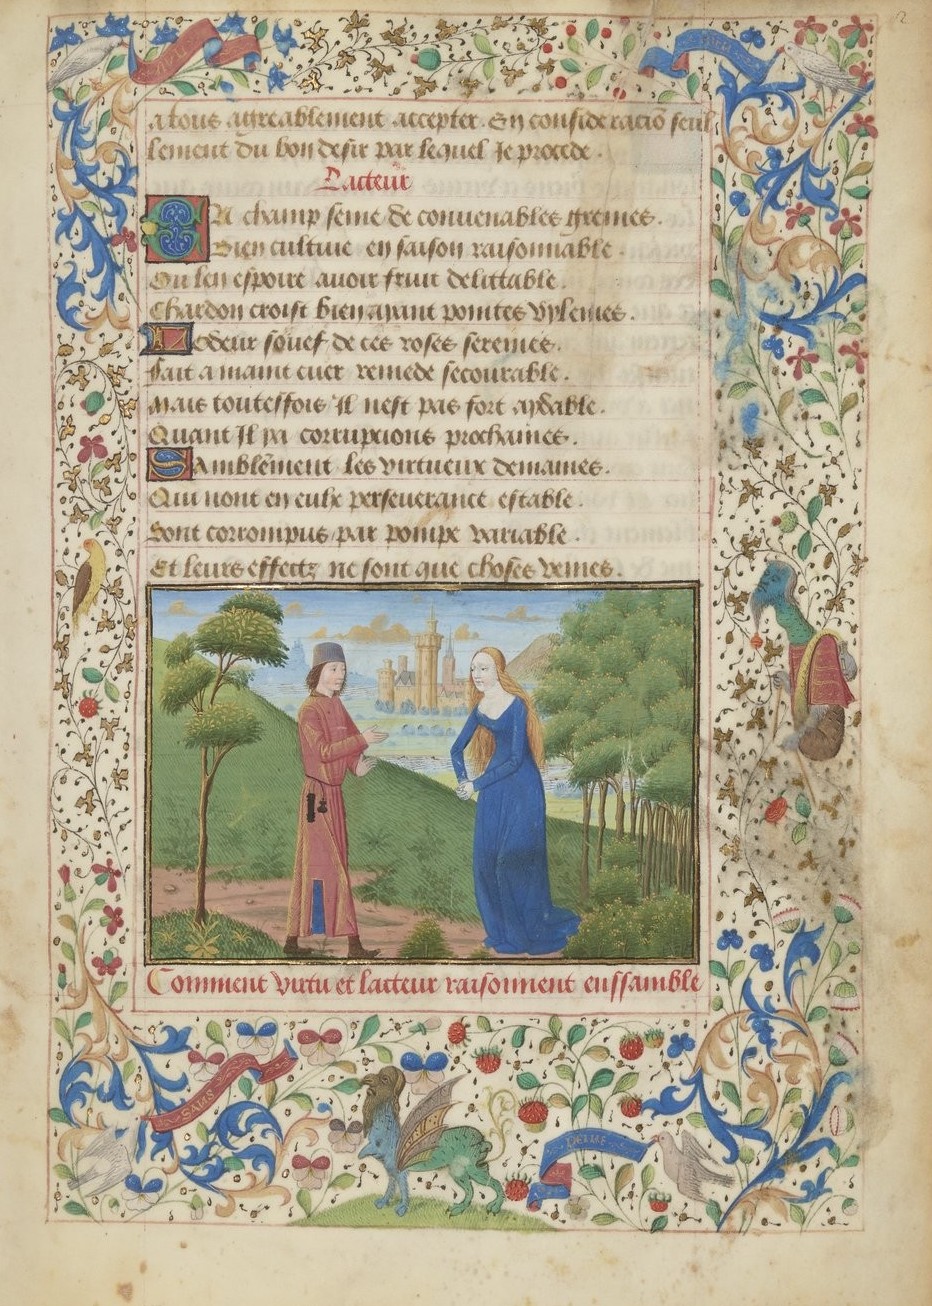 a tous agreablement accepter. En consideracio seul
lement du bon desir par lequel Je procede.
Lacteur
En champ seme de convenables grenies.
Bien cultiue en saison raisonnable.
Ou len espoire auoir fruit delittable.
Chardon croist bien ayant pointes vylenies.
Lodeur souef de ces roses seremes.
Fait a maint cuer remede secourable.
Mais touteffois Il nest pas fort aydable.
Quant Il ya corrupcions prochaines.
Samblement les virtueux demaines.
Qui nont en eulx perseuerance estable.
Sont corrompus par pompe variable.
Et leurs effectz ne sont que choses veines.
Comment virtu et lacteur raisonnent enssamble
SANS
PEINE